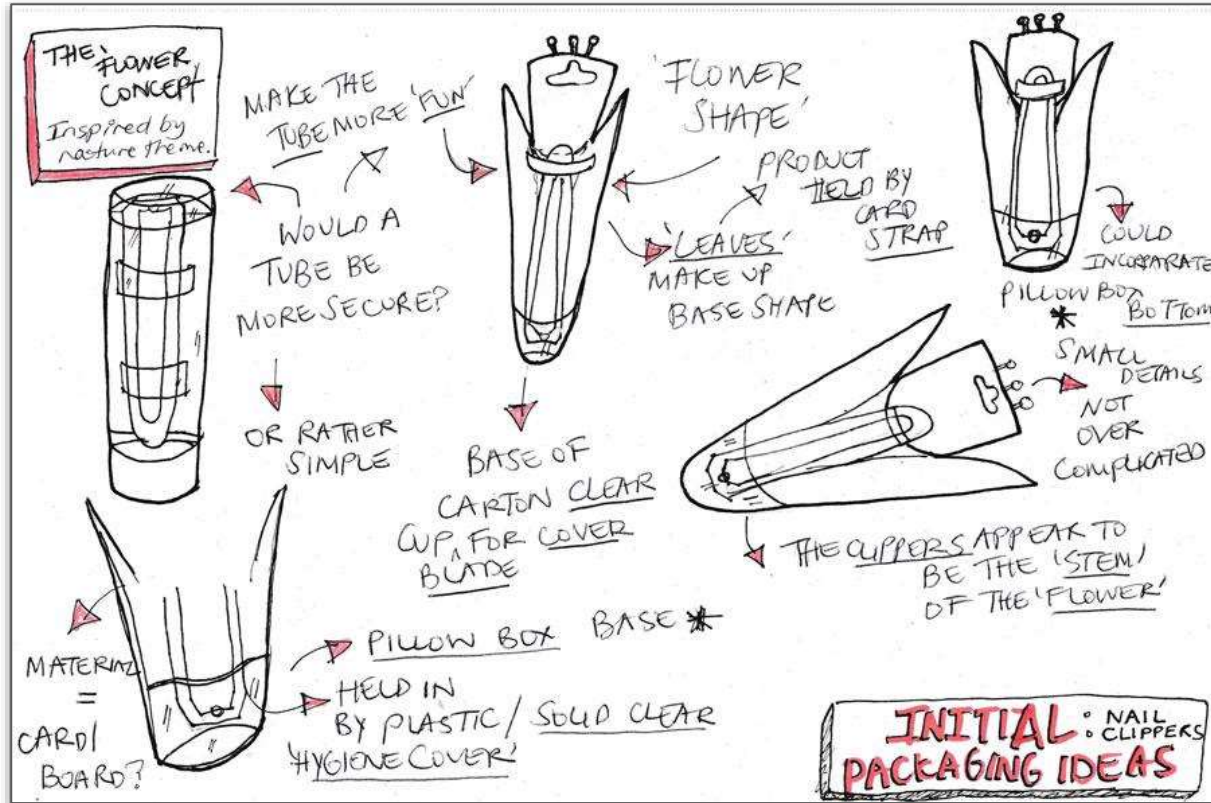 THE 'FLOWER
CONCEPT
Inspired by
nasture theme.
MAKE THE
TUBE MORE 'FUN'
WOULD A
TUBE BE
MORE SECURE?
OR RATHER
SIMPLE
'FLOWER
SHAPE'
PRODUCT
HELD BY
CARD
STRAP
'LEAVES'
MAKE UP
BASE SHAPE
COULD
INCORPARATE
PILLOW BOX
BOTTOM
*
SMALL
DETAILS
NOT
OVER
COMPLICATED
BASE OF
CARTON CLEAR
CUP, FOR COVER
BLADE
THE CLIPPERS APPEAR TO
BE THE 'STEM'
OF THE 'FLOWER'
MATERIAL
=
CARD/
BOARD?
PILLOW BOX BASE *
HELD IN
BY PLASTIC / SOLID CLEAR
'HYGIENE COVER'
INITIAL : NAIL
: CLIPPERS
PACKAGING IDEAS